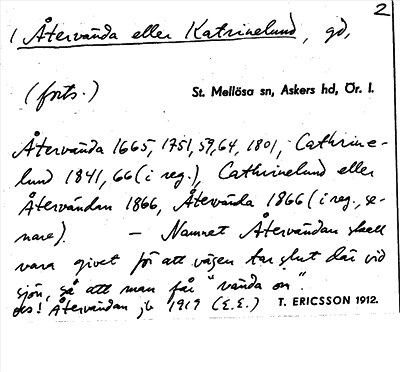 2
( Återvända eller Katrinelund, gd,
(forts.) St. Mellösa sn, Askers hd, Ör. l.
Återvända 1665, 1751, 59, 64, 1801, Cathrine-
lund 1841, 66 (i reg.), Cathrinelund eller
Återvändan 1866, Återvända 1866 (i reg., se-
nare). — Namnet Återvändan skall
vara givet för att vägen tar slut där vid
sjön, så att man får "vända on".
ds! Återvändan jb 1919 (E.E.) T. ERICSSON 1912.